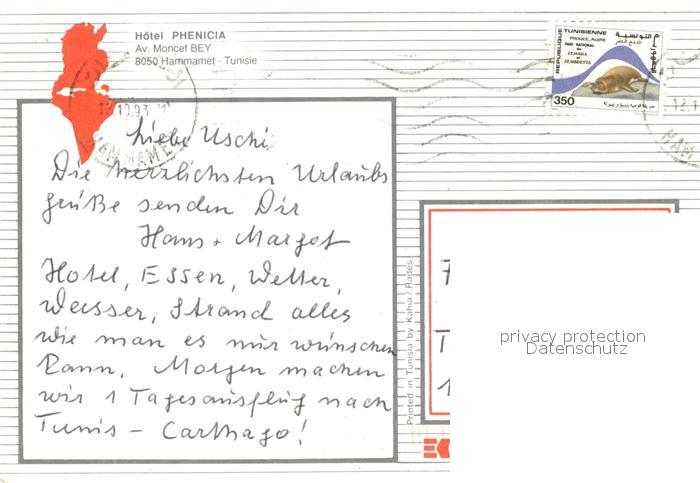 Hôtel PHENICIA
Av. Moncef BEY
8050 Hammamet - Tunisie
REPUBLIQUE TUNISIENNE
PHOQUE MOINE
PARC NATIONAL
de
ZEMBRA
et
ZEMBRETTA
350
Liebe Uschi,
Die herzlichsten Urlaubs
grüße senden Dir
Hans + Margot
Hotel, Essen, Wetter,
Wasser, Strand alles
wie man es nur wünschen
kann. Morgen machen
wir 1 Tagesausflug nach
Tunis - Carthago!
Printed in Tunisia by Kahia / Rades
privacy protection
Datenschutz